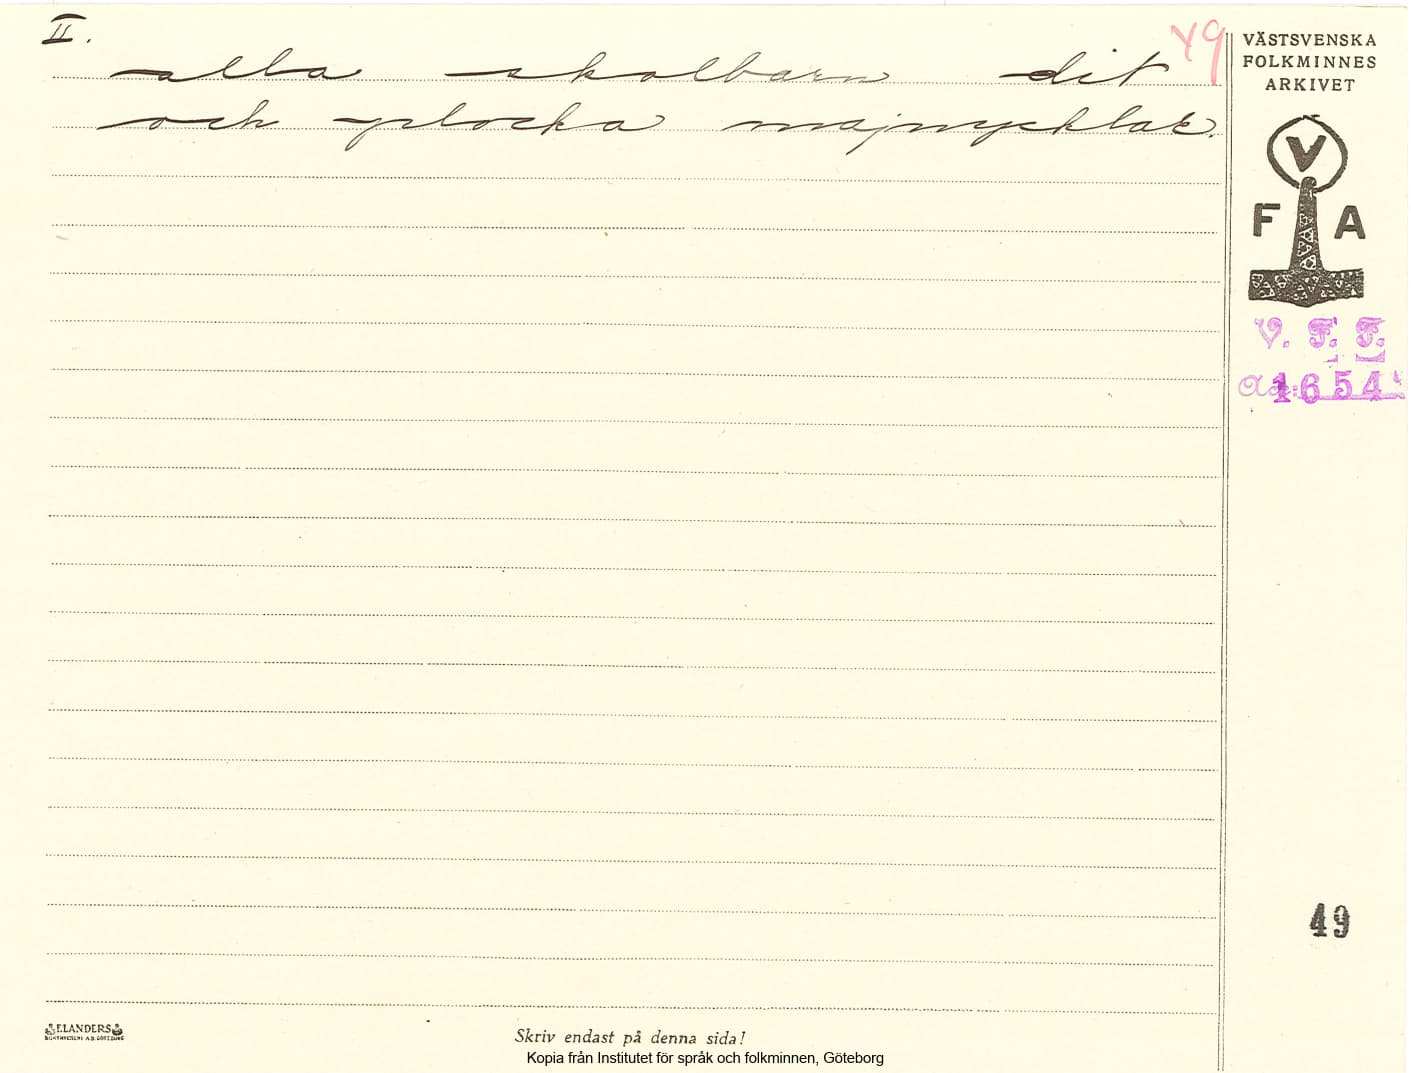 II.
49
alla skolbarn dit
och plocka majnycklar.
VÄSTSVENSKA
FOLKMINNES
ARKIVET
V
F A
V. F. F.
1654
49
ELANDERS
Skriv endast på denna sida!
Kopia från Institutet för språk och folkminnen, Göteborg